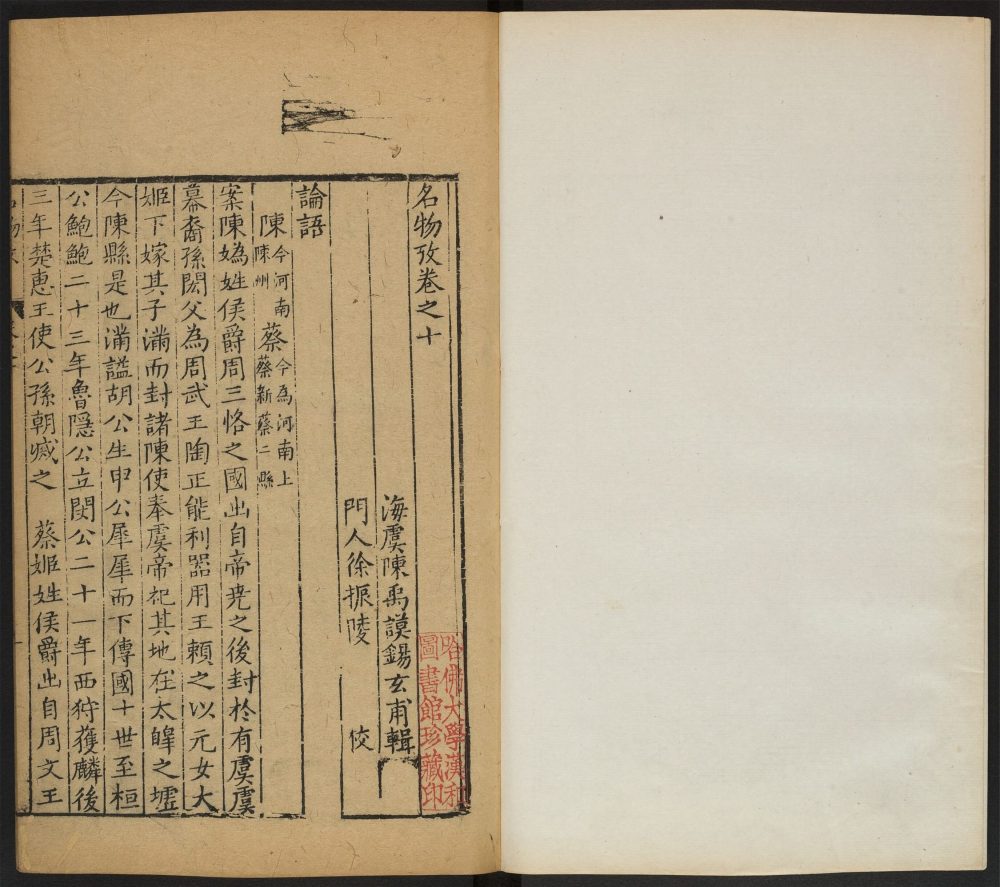 名物攷卷之十
海虞陳禹謨錫玄甫輯
門人徐振陵 佼
論語
陳今河南陳州蔡今爲河南上蔡新蔡二縣
案陳嬀姓侯爵周三恪之國出自帝堯之後封於有虞虞
幕裔孫閼父為周武王陶正能利器用王賴之以元女大
姬下嫁其子滿而封諸陳使奉虞帝祀其地在太皞之墟
今陳縣是也滿謚胡公生申公犀犀而下傳國十世至桓
公鮑鮑二十三年魯隱公立閔公二十一年西狩獲麟後
三年楚惠王使公孫朝滅之 蔡姬姓侯爵出自周文王
名物攷
哈佛大學漢和
圖書館珍藏印